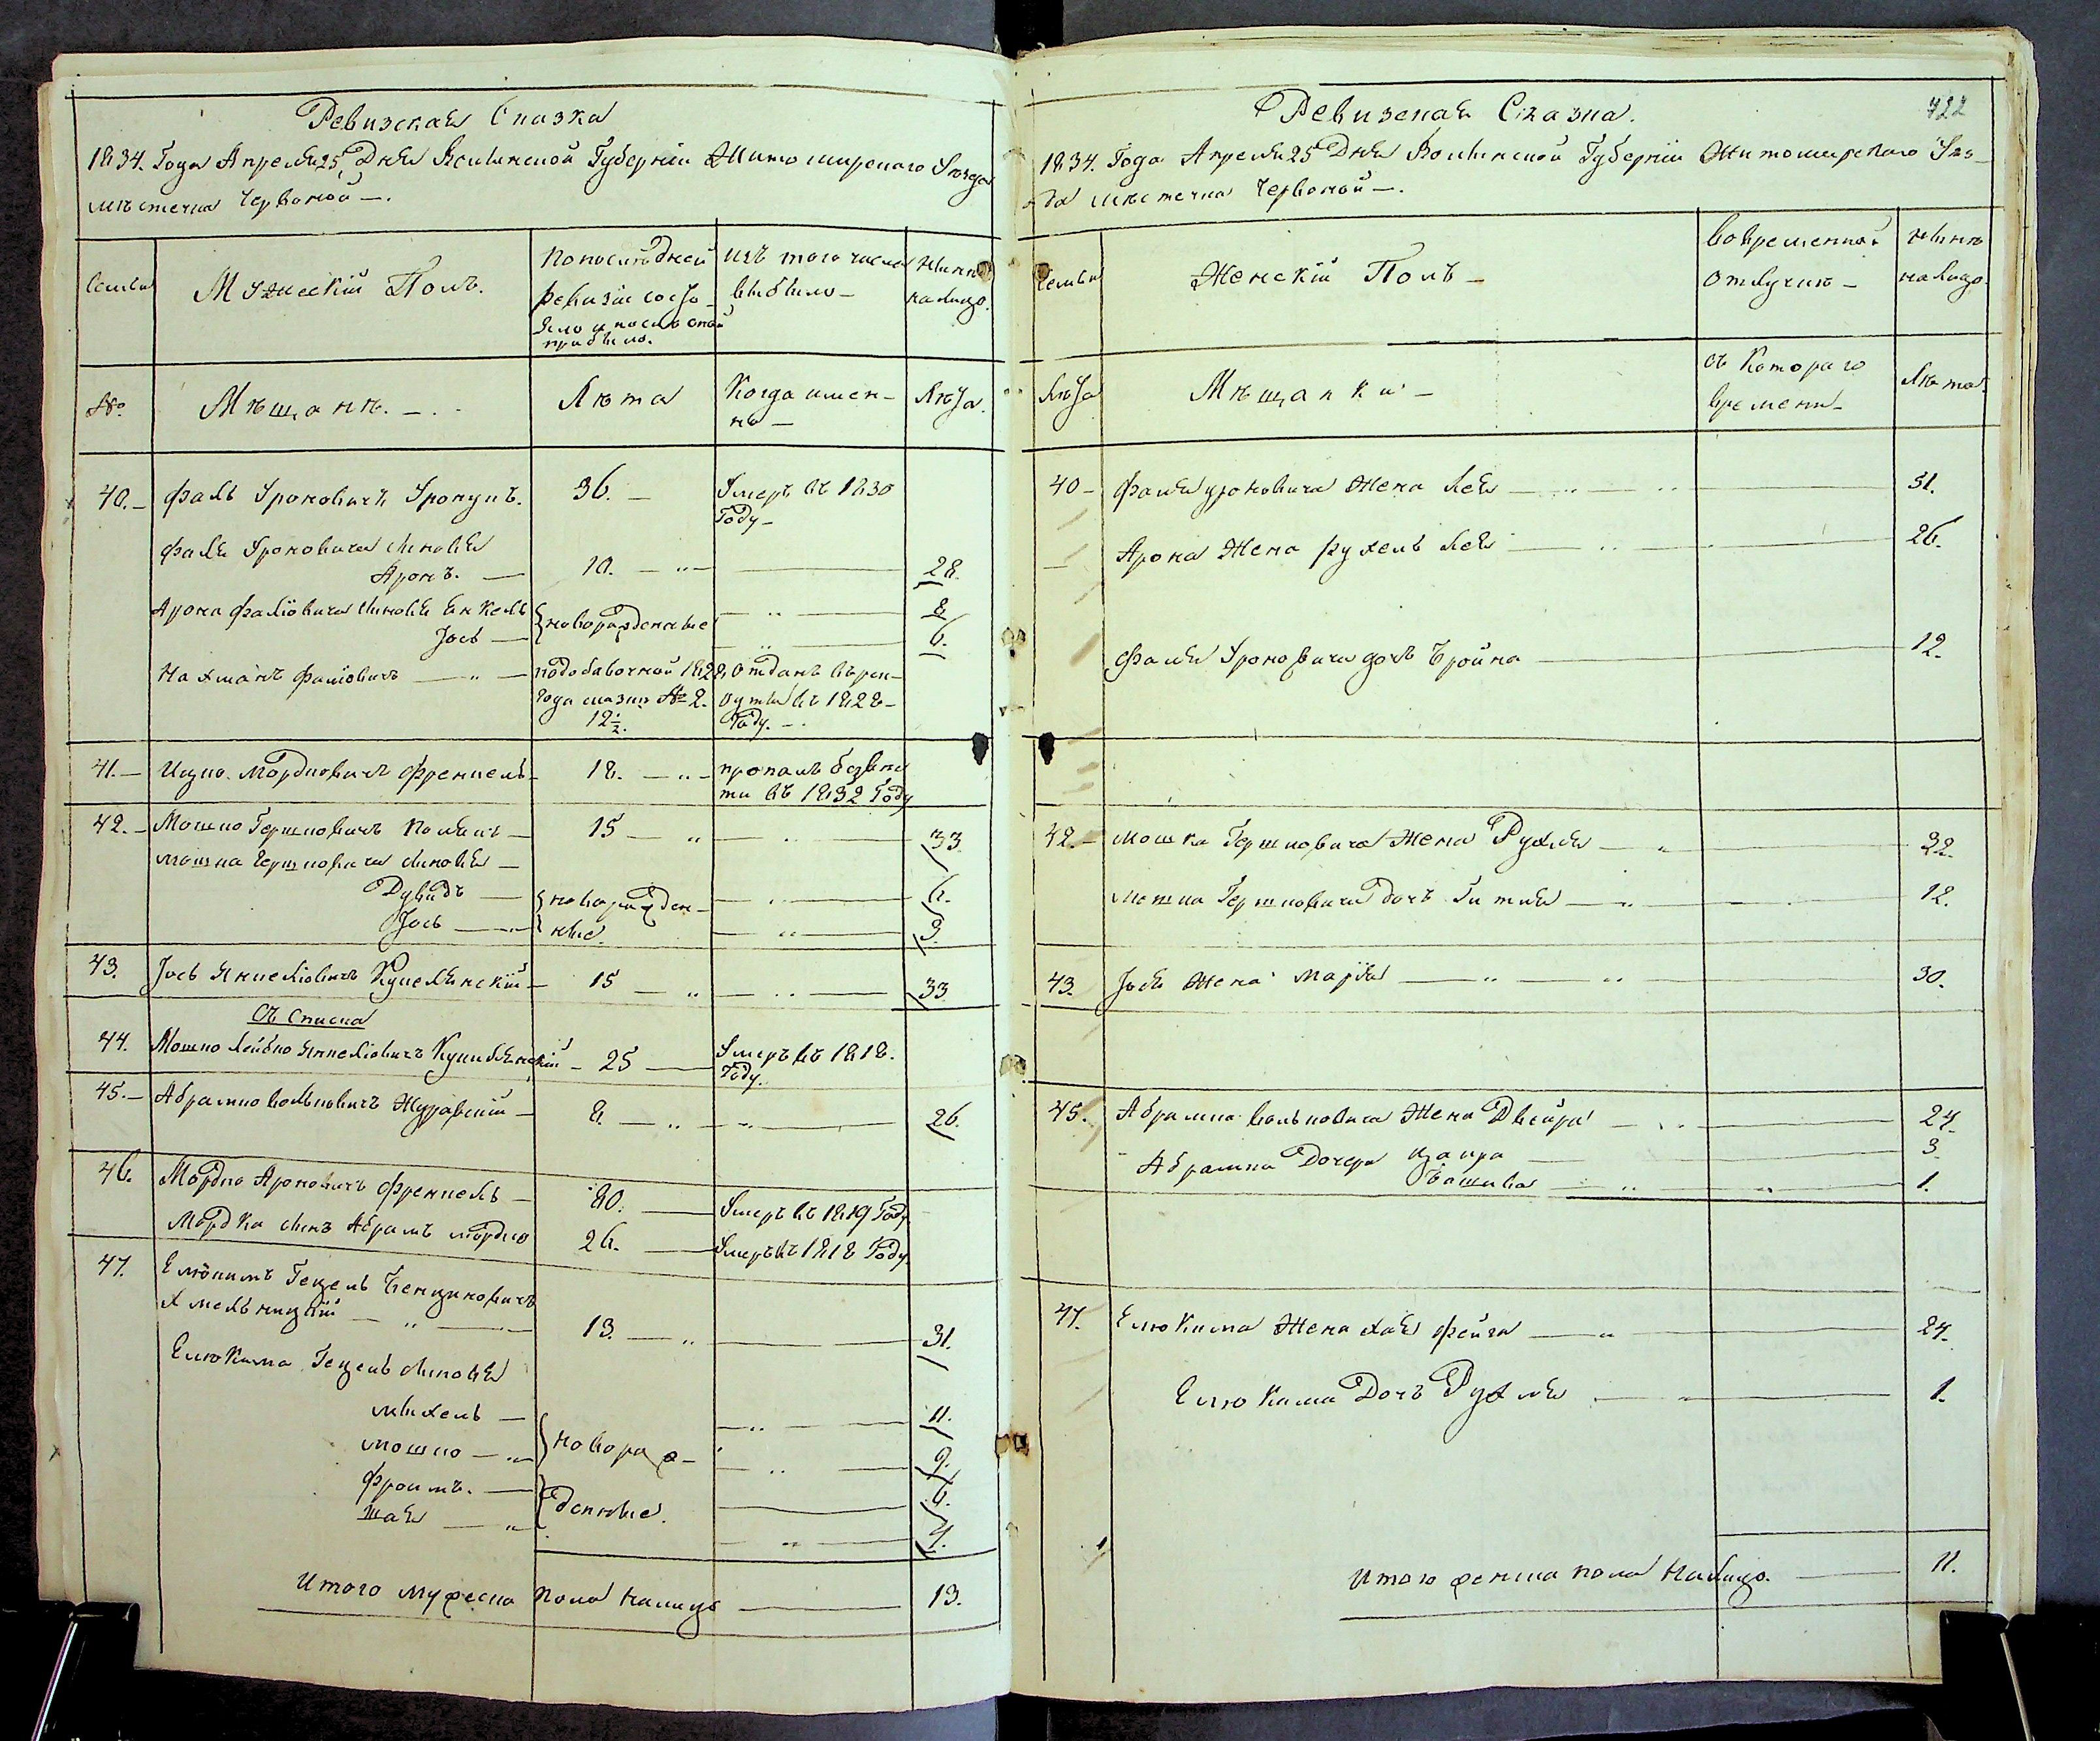 Ревизская Сказка
1834. Года Апреля 25 Дня Волынской Губернии Житомирскаго Уезда
мѣстечка Червоной —.
Семьи
Мужескій Полъ.
По последней
ревизіи состо-
яло и послѣ оной
прибыло.
Изъ того числа
выбыло —
Нынѣ
налицо.
№
Мѣщанѣ. —
Лѣта
Когда имен-
но —
Лѣта.
40. — Фаль Уроновичъ 36. — Умеръ въ 1830
Году —
Фаля Уроновича сыновья
Аронъ. — 10. — 28.
Арона Фаліовича сыновья Янкель 8
Іось — новорожденные 6.
Нахманъ Фаліовичъ — подобавочной 1828, Отданъ въ рек-
года сказкѣ № 2. руты въ 1828 —
12½. Году. —
41. — Ицко Мордковичъ Френкель — 18. — пропалъ безвѣс
ти въ 1832 Году
42. — Мошко Гершковичъ — 15 — 33
Мошка Гершковича сыновья —
Дувидъ — новорожден- 6.
Іось — ные. 3.
43. Іось Янкеліовичъ — 15 — 33
Съ Списка
44. Мошко Лейбко Янкеліовичъ — 25 — Умеръ въ 1818.
Году.
45. — Абрамко Волковичъ Журавскій — 8. — 26.
46. Мордко Ароновичъ Френкель — 80. — Умеръ въ 1819 Году
Мордка сынъ Абрамъ Мордко 26. — Умеръ въ 1818 Году.
47. Елюкимъ Гецель Бенциновичъ
Хмельницкій — 13. — 31.
Елюкима Гецель сыновья
Михель — 11.
Мошко — новорож- 9.
Фроимъ. — денные. 6.
Шая — 4.
Итого мужеска пола налицо — 13.
722
Ревизская Сказка.
1834. Года Апреля 25 Дня Волынской Губерніи Житомирскаго Уѣз-
да мѣстечка Червоной —.
Семьи
Женскій Полъ —
Во временной
отлучкѣ —
Нынѣ
налицо.
Лѣта
Мѣщанки —
Съ Котораго
времени —
Лѣта.
40 — Фаля Уроновича Жена Лея — 51.
Арона Жена Рухель Лея — 26.
Фаля Уроновича дочь Бройна — 12.
42. — Мошка Гершковича Жена Рухля — 32.
Мошка Гершковича Дочь Гитля — 12.
43. Іося Жена Марія — 30.
45. Абрамка Вольковича Жена Двейра — 24.
Абрамка Дочери 3.
Башива — 1.
47. Елюкима Жена Хая Фейга — 24.
Елюкима Дочь Рухля — 1.
Итого женска пола Налицо. — 11.